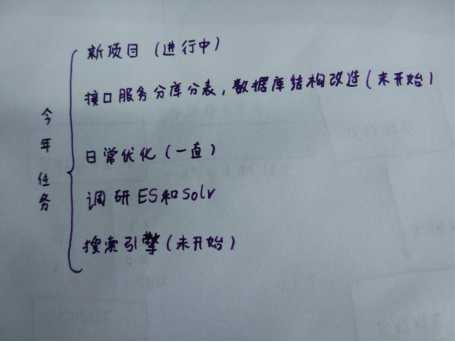 今年任务
新项目（进行中）
接口服务分库分表，数据库结构改造（未开始）
日常优化（一直）
调研ES和Solr
搜索引擎（未开始）